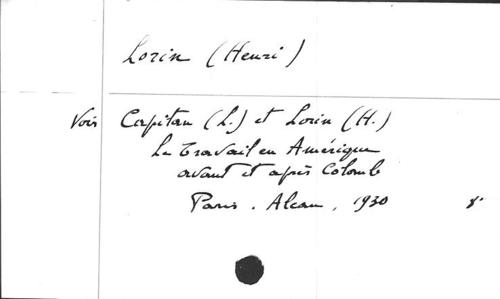 Lorin (Henri)
Voir Capitan (L.) et Lorin (H.)
Le Travail en Amérique
avant et après Colomb
Paris. Alcan, 1930 8°